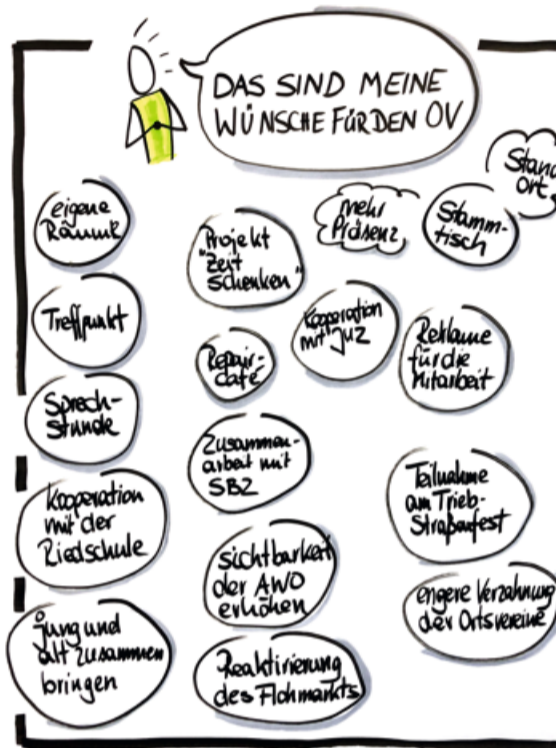 DAS SIND MEINE
WÜNSCHE FÜR DEN OV
eigene
Räume
Treffpunkt
Sprech-
stunde
Kooperation
mit der
Riedschule
jung und
alt zusammen
bringen
Projekt
"Zeit
schenken"
Repair-
café
Zusammen-
arbeit mit
SBZ
sichtbarkeit
der AWO
erhöhen
Reaktivierung
des Flohmarkts
mehr
Präsenz
Kooperation
mit JUZ
Stamm-
tisch
Stand
Ort
Reklame
für die
Mitarbeit
Teilnahme
am Trieb-
Straßenfest
engere Verzahnung
der Ortsvereine